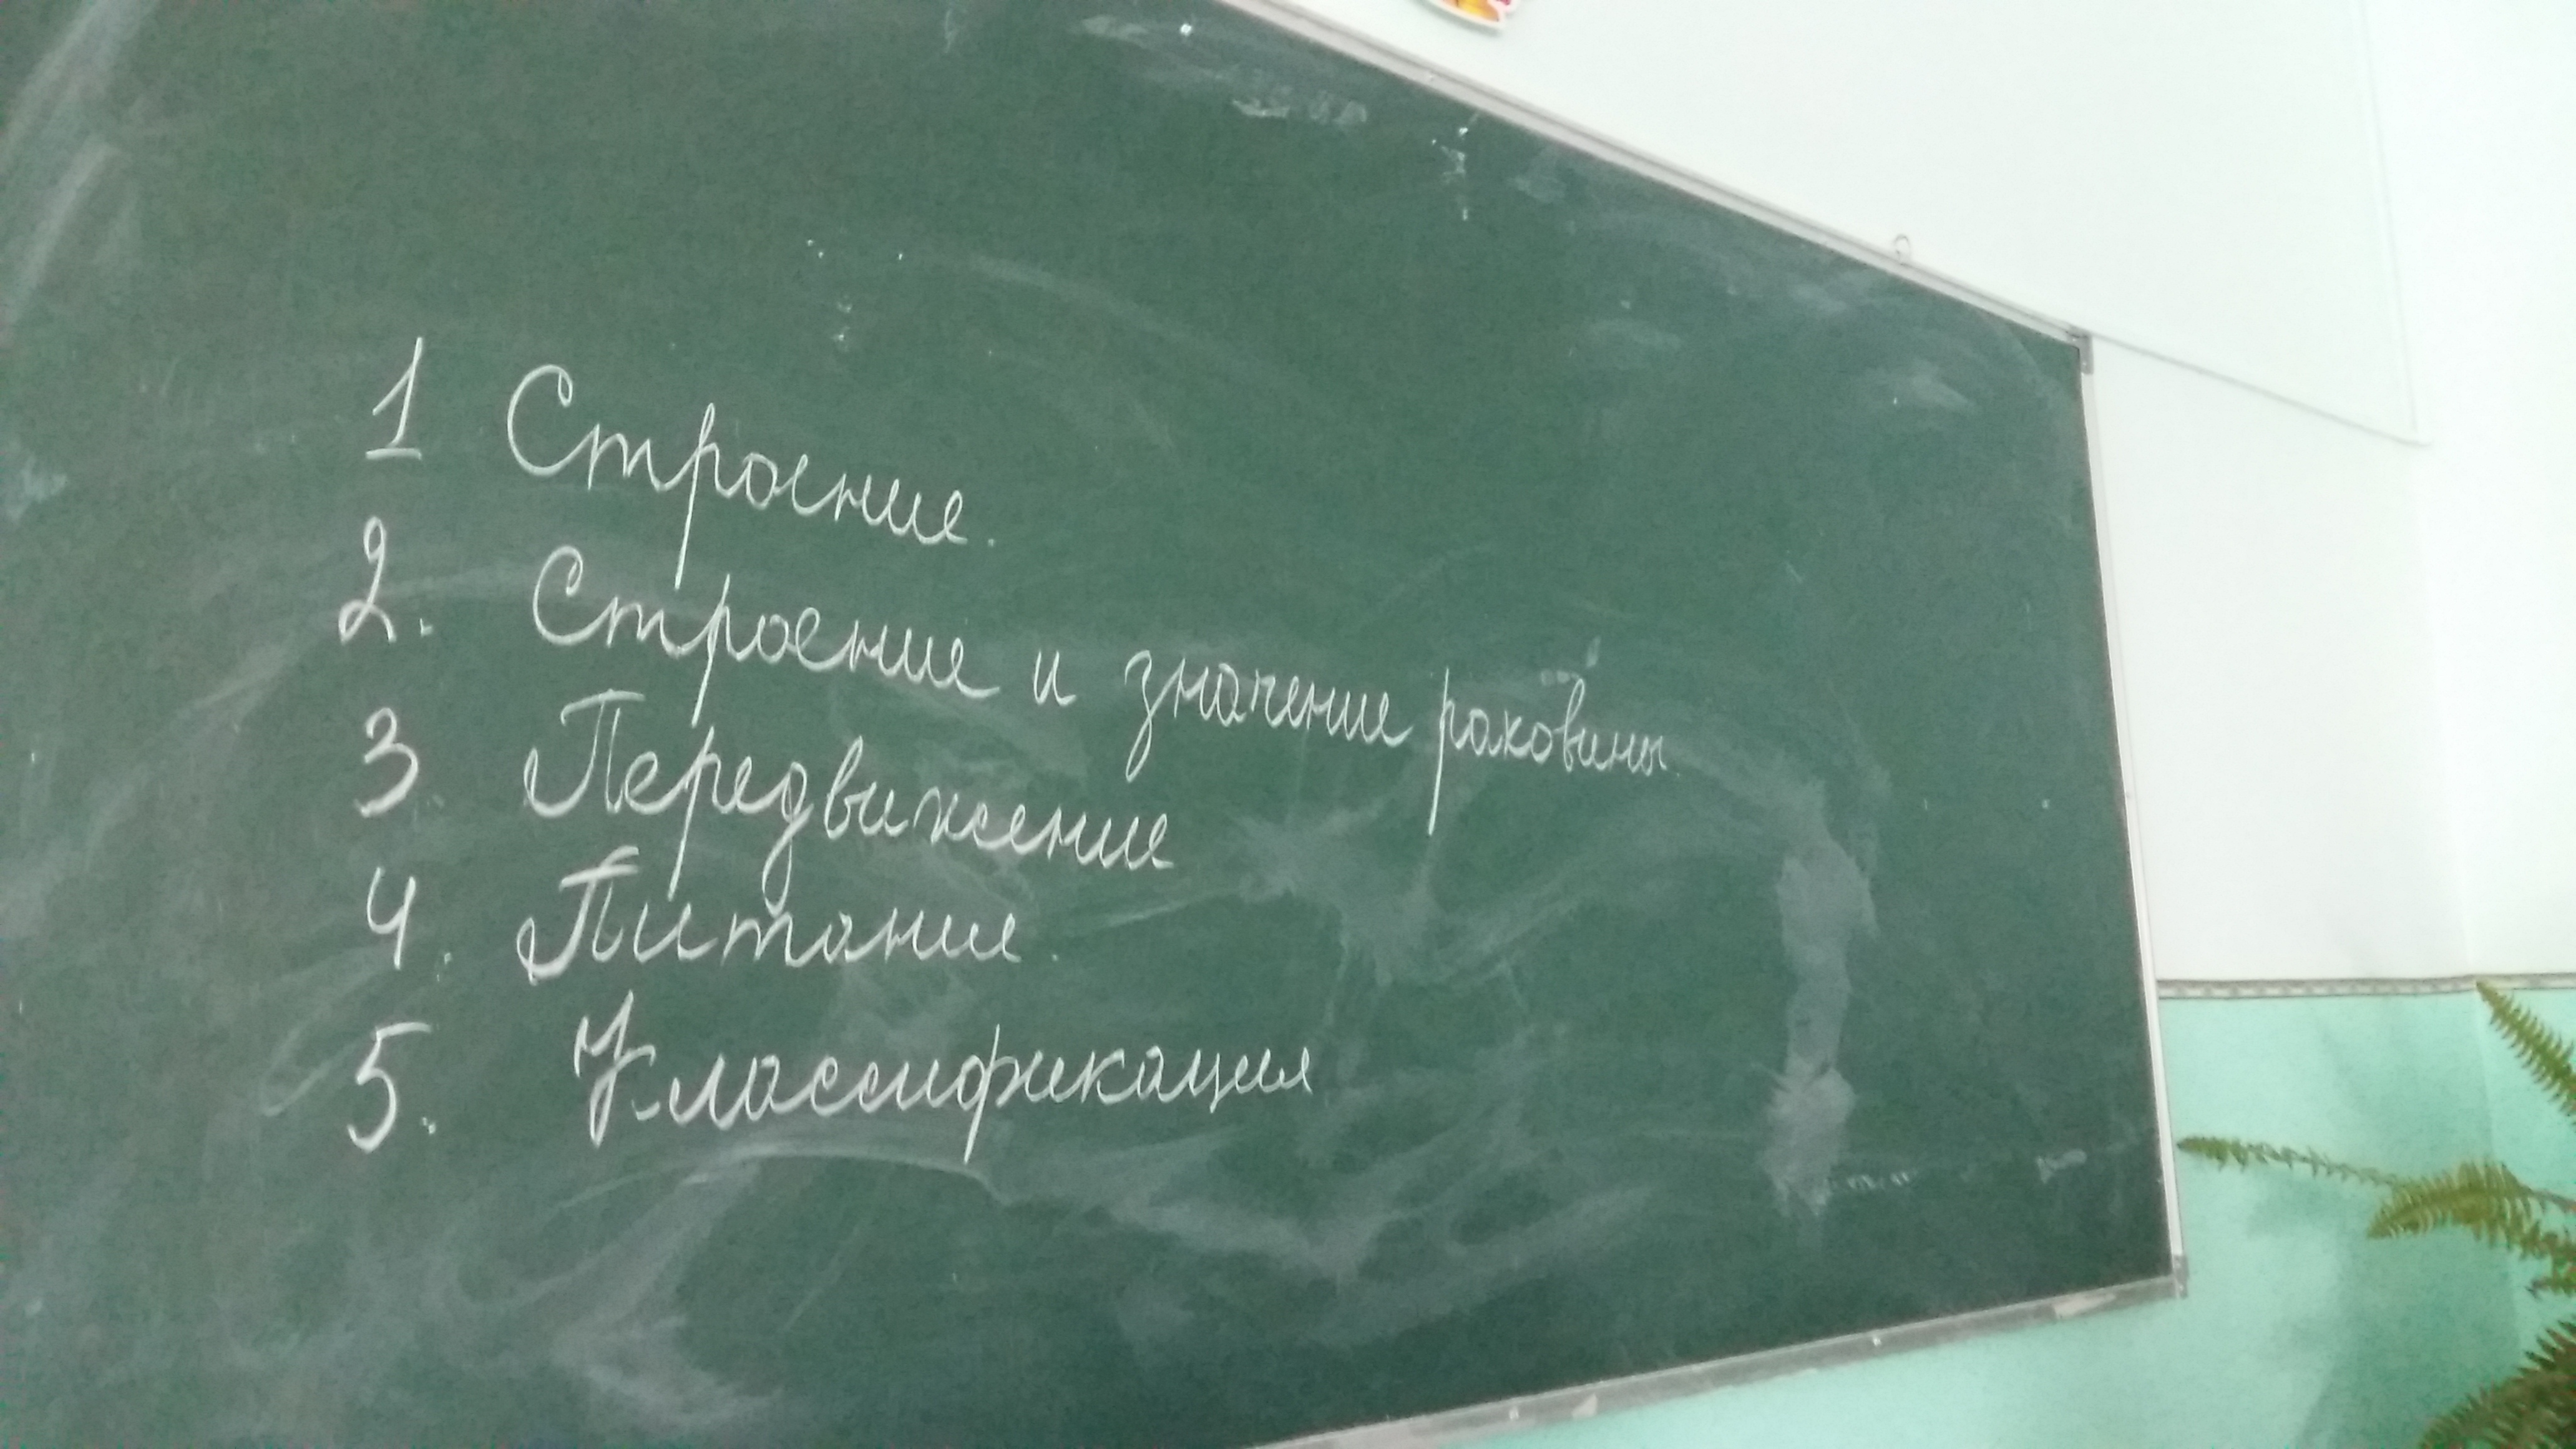 1 Строение.
2. Строение и значение раковины.
3. Передвижение
4. Питание.
5. Классификация